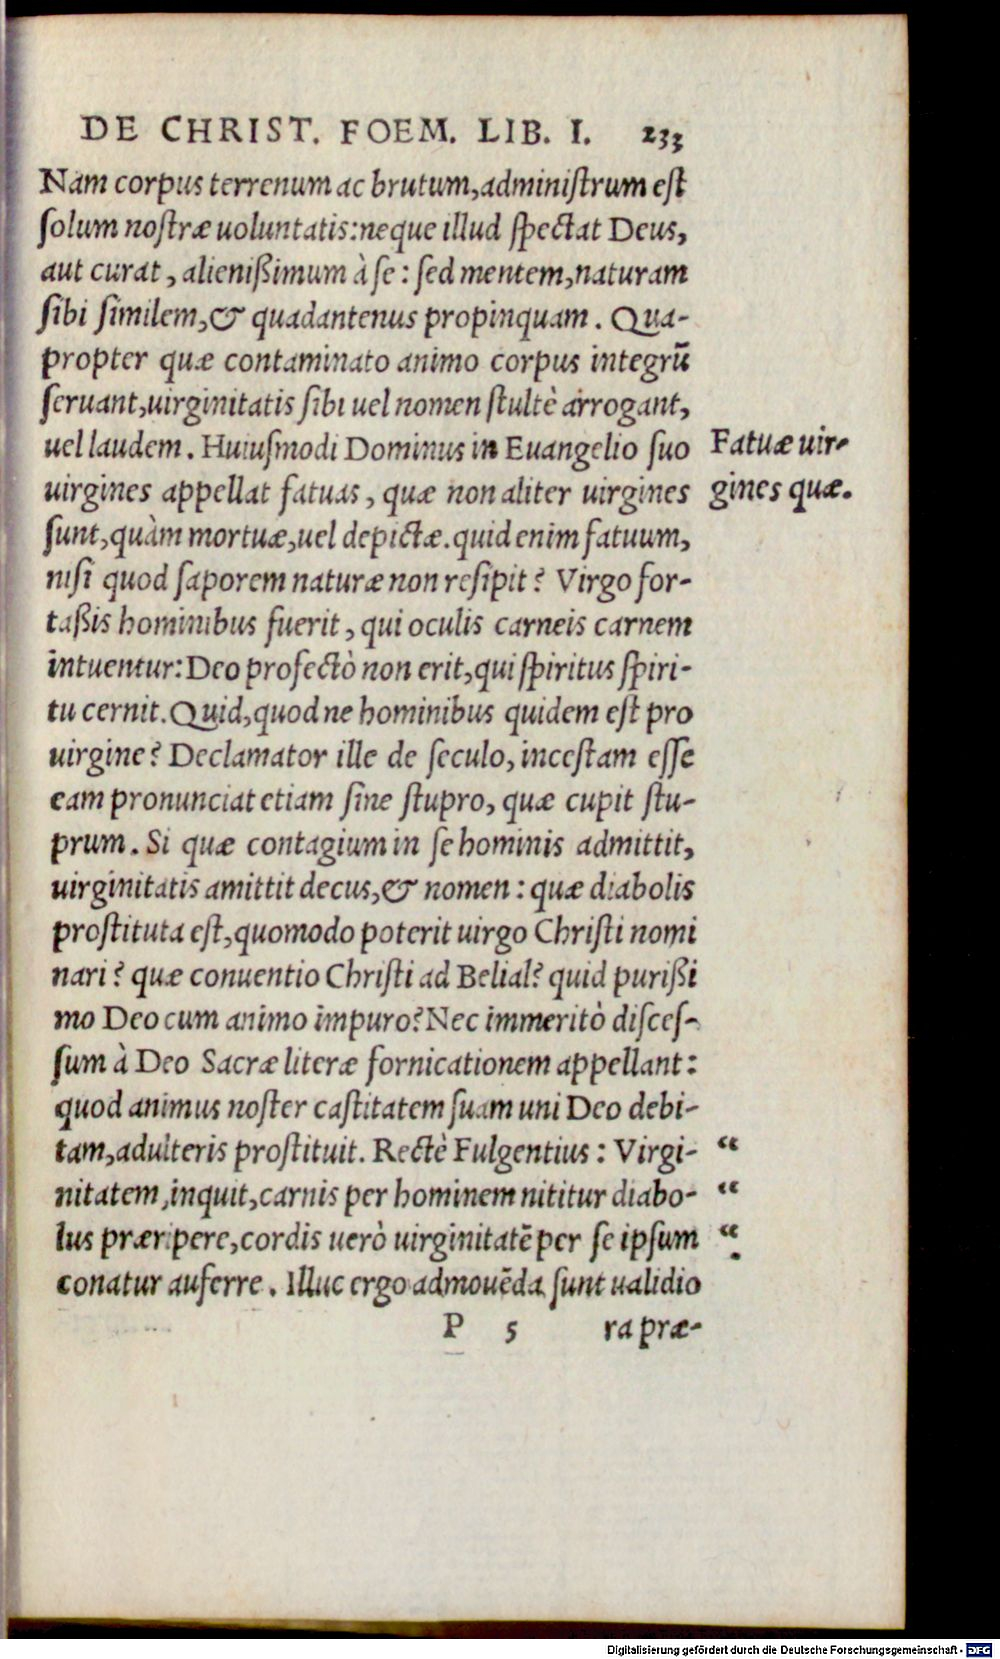 DE CHRIST. FOEM. LIB. I. 233
Nam corpus terrenum ac brutum, administrum est
solum nostræ uoluntatis: neque illud spectat Deus,
aut curat, alienißimum à se: sed mentem, naturam
sibi similem, & quadantenus propinquam. Qua-
propter quæ contaminato animo corpus integrū
seruant, uirginitatis sibi uel nomen stultè arrogant,
uel laudem. Huiusmodi Dominus in Euangelio suo
Fatuæ uir-
uirgines appellat fatuas, quæ non aliter uirgines
gines quæ.
sunt, quàm mortuæ, uel depictæ. quid enim fatuum,
nisi quod saporem naturæ non resipit? Virgo for-
taßis hominibus fuerit, qui oculis carneis carnem
intuentur: Deo profectò non erit, qui spiritus spiri-
tu cernit. Quid, quod ne hominibus quidem est pro
uirgine? Declamator ille de seculo, incestam esse
eam pronunciat etiam sine stupro, quæ cupit stu-
prum. Si quæ contagium in se hominis admittit,
uirginitatis amittit decus, & nomen: quæ diabolis
prostituta est, quomodo poterit uirgo Christi nomi
nari? quæ conuentio Christi ad Belial? quid purißi
mo Deo cum animo impuro? Nec immeritò disces-
sum à Deo Sacræ literæ fornicationem appellant:
quod animus noster castitatem suam uni Deo debi-
tam, adulteris prostituit. Rectè Fulgentius: Virgi- “
nitatem, inquit, carnis per hominem nititur diabo- “
lus præripere, cordis uerò uirginitatē per se ipsum “
conatur auferre. Illuc ergo admouēda sunt ualidio
P 5 ra præ-
Digitalisierung gefördert durch die Deutsche Forschungsgemeinschaft - DFG